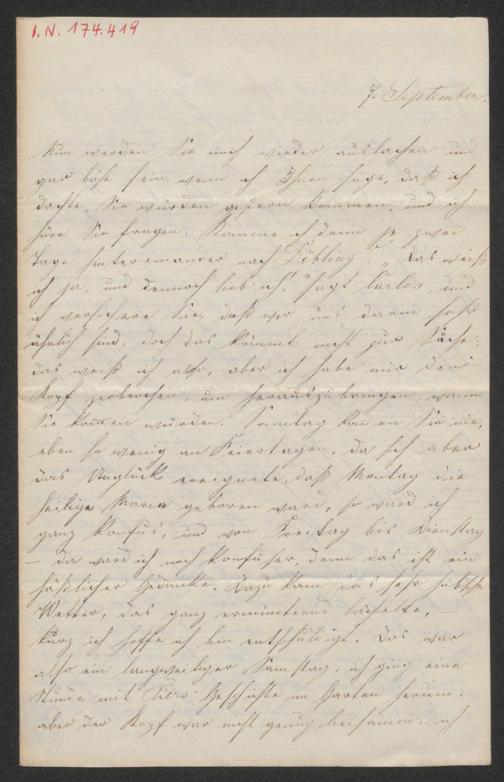 I.N. 174.419
7. September.
Nun werden Sie mich wieder auslachen und
gar böse sein, wenn ich Ihnen sage, daß ich
dachte, Sie würden gestern kommen, und ich
höre Sie fragen: Komme ich denn je zwei
Tage hintereinander nach Döbling? „Das weiß
ich ja, und dennoch lieb' ich," sagt Carlos, und
ich versichere Sie, daß wir uns darin sehr
ähnlich sind, doch das kömmt nicht zur Sache;
das weiß ich also, aber ich habe mir den
Kopf zerbrochen, um herauszubringen, wann
Sie kommen würden. Sonntag kamen Sie nie,
eben so wenig an Feiertagen, da sich aber
das Unglück ereignete, daß Montag die
heilige Maria geboren ward, so ward ich
ganz konfus, und von Freitag bis Dienstag
– da ward ich noch konfuser, denn das ist ein
häßlicher Gedanke. Dazu kam das sehr hübsche
Wetter, das ganz ermunternd lächelte,
kurz ich hoffe ich bin entschuldigt. Das war
also ein langweiliger Samstag; ich ging eine
Stunde mit Geschichte im Garten herum,
aber der Kopf war nicht genug beisamm, ich